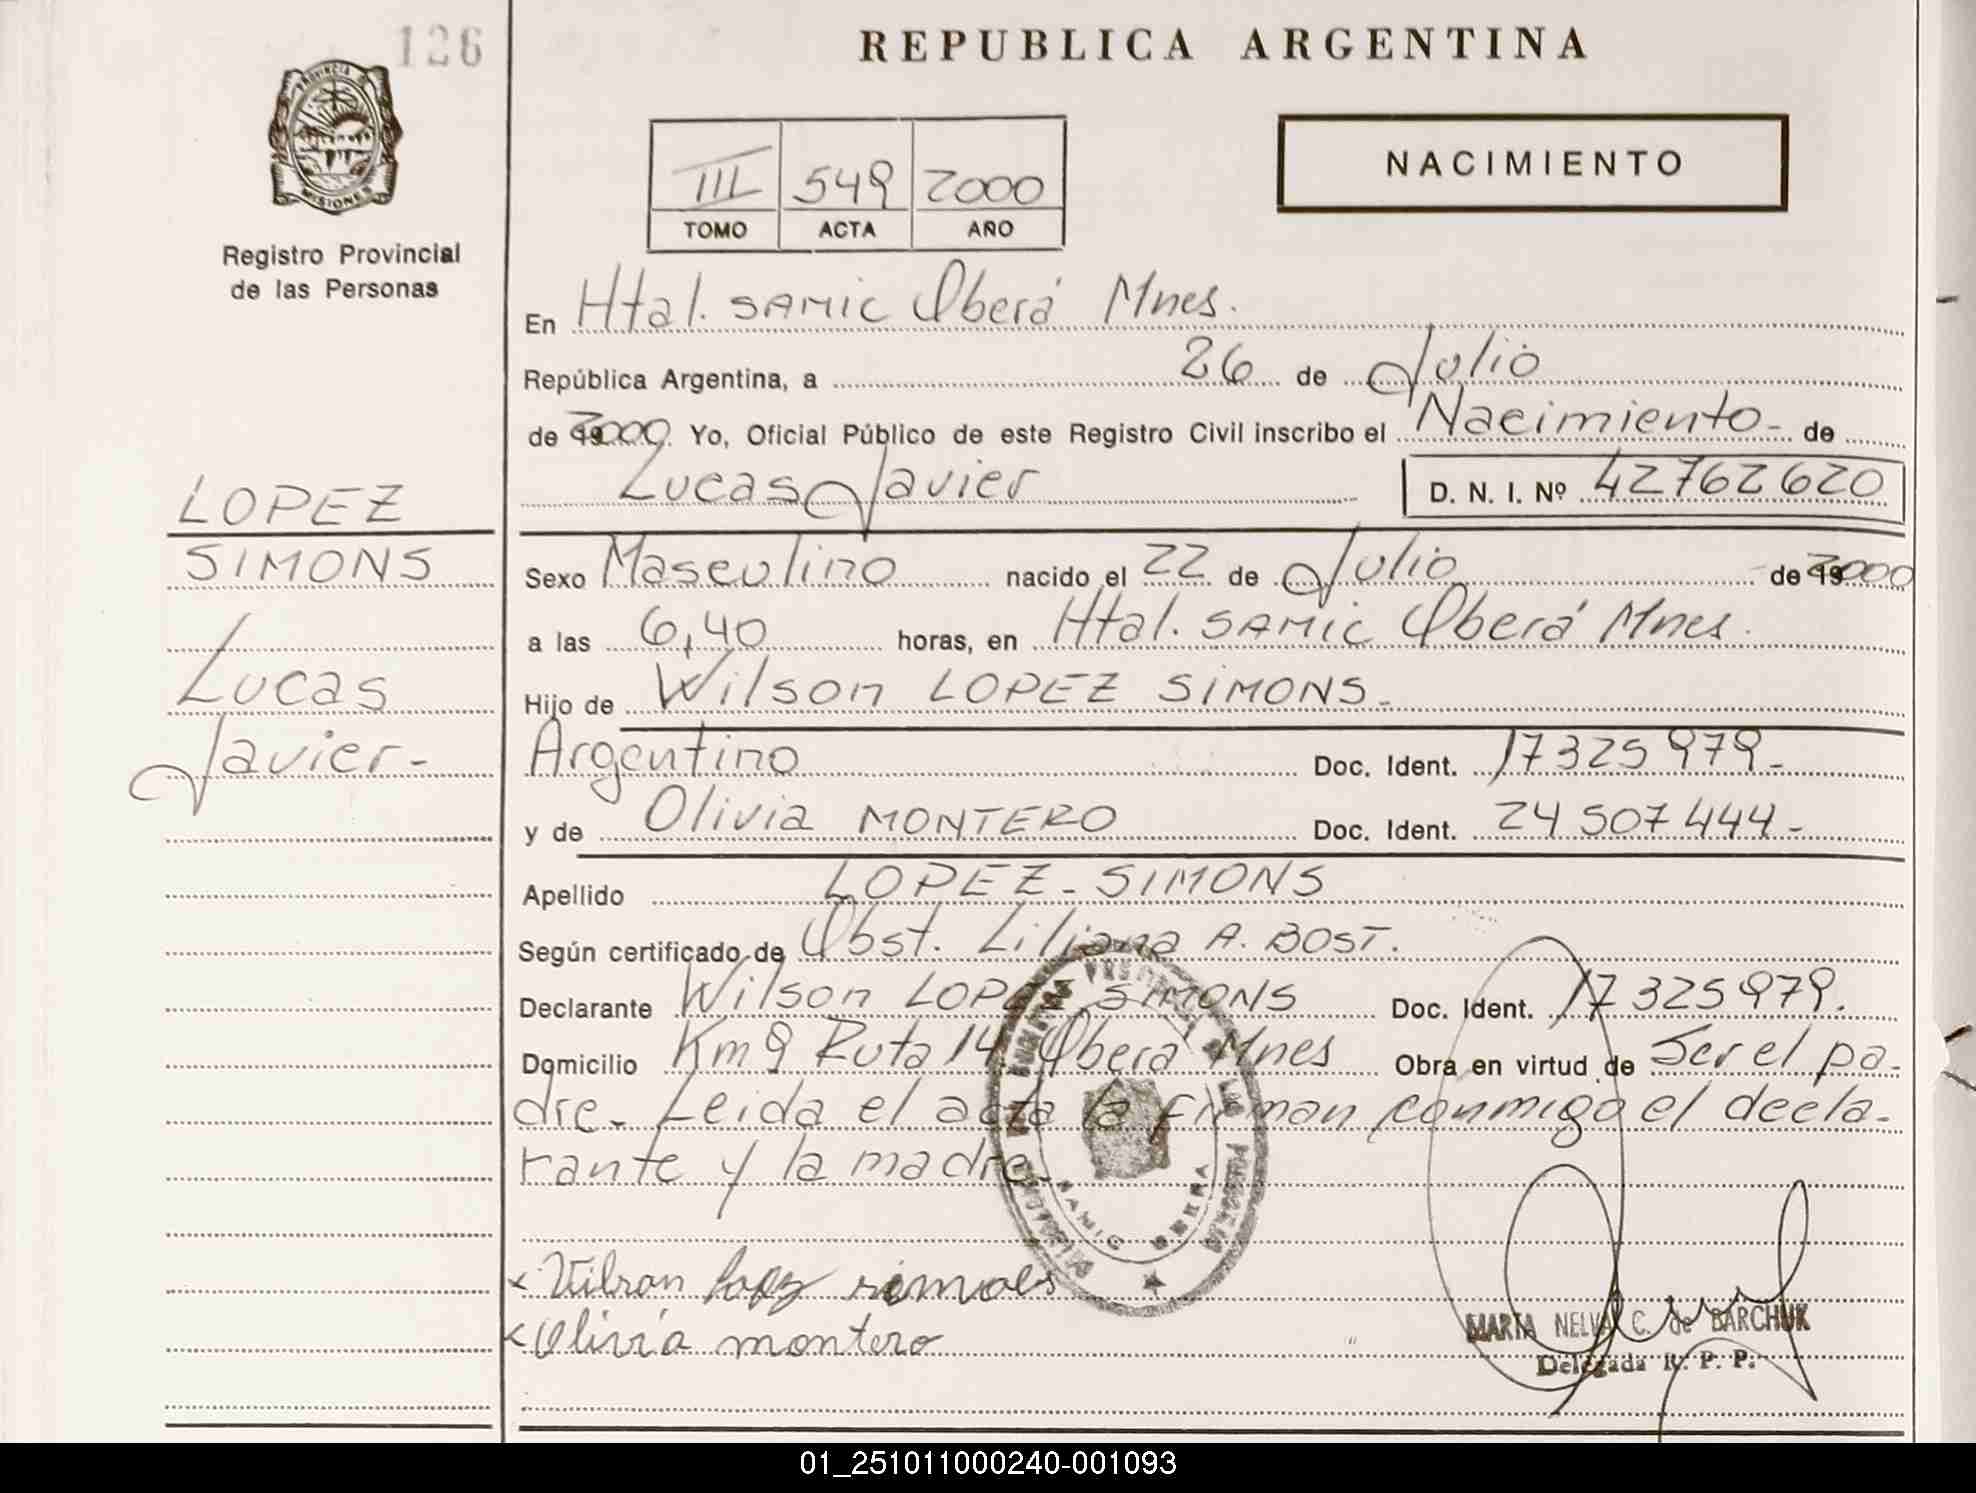 126
REPUBLICA ARGENTINA
PROVINCIA DE
MISIONES
Registro Provincial
de las Personas
III 549 2000
TOMO ACTA AÑO
NACIMIENTO
En Htal. SAMIC Oberá Mnes.
República Argentina, a 26 de Julio
de 2000 Yo, Oficial Público de este Registro Civil inscribo el Nacimiento - de
Lucas Javier D. N. I. Nº 42762620
LOPEZ
SIMONS
Lucas
Javier-
Sexo Masculino nacido el 22 de Julio de 2000
a las 6,40 horas, en Htal. SAMIC Oberá Mnes.
Hijo de Wilson LOPEZ SIMONS.-
Argentino Doc. Ident. 17325979-
y de Olivia MONTERO Doc. Ident. 24507444-
Apellido LOPEZ - SIMONS
Según certificado de Obst. Liliana A. BOST.
Declarante Wilson LOPEZ SIMONS Doc. Ident. 17325979.
Domicilio Km 9 Ruta 14 Oberá Mnes Obra en virtud de Ser el pa-
dre- Leida el acta la firman conmigo el decla-
rante y la madre.
SAMIC OBERA
x Wilson Lopez simoes
x Olivia montero
MARTA NELVA C. de BARCHUK
Delegada R. P. P.
01_251011000240-001093